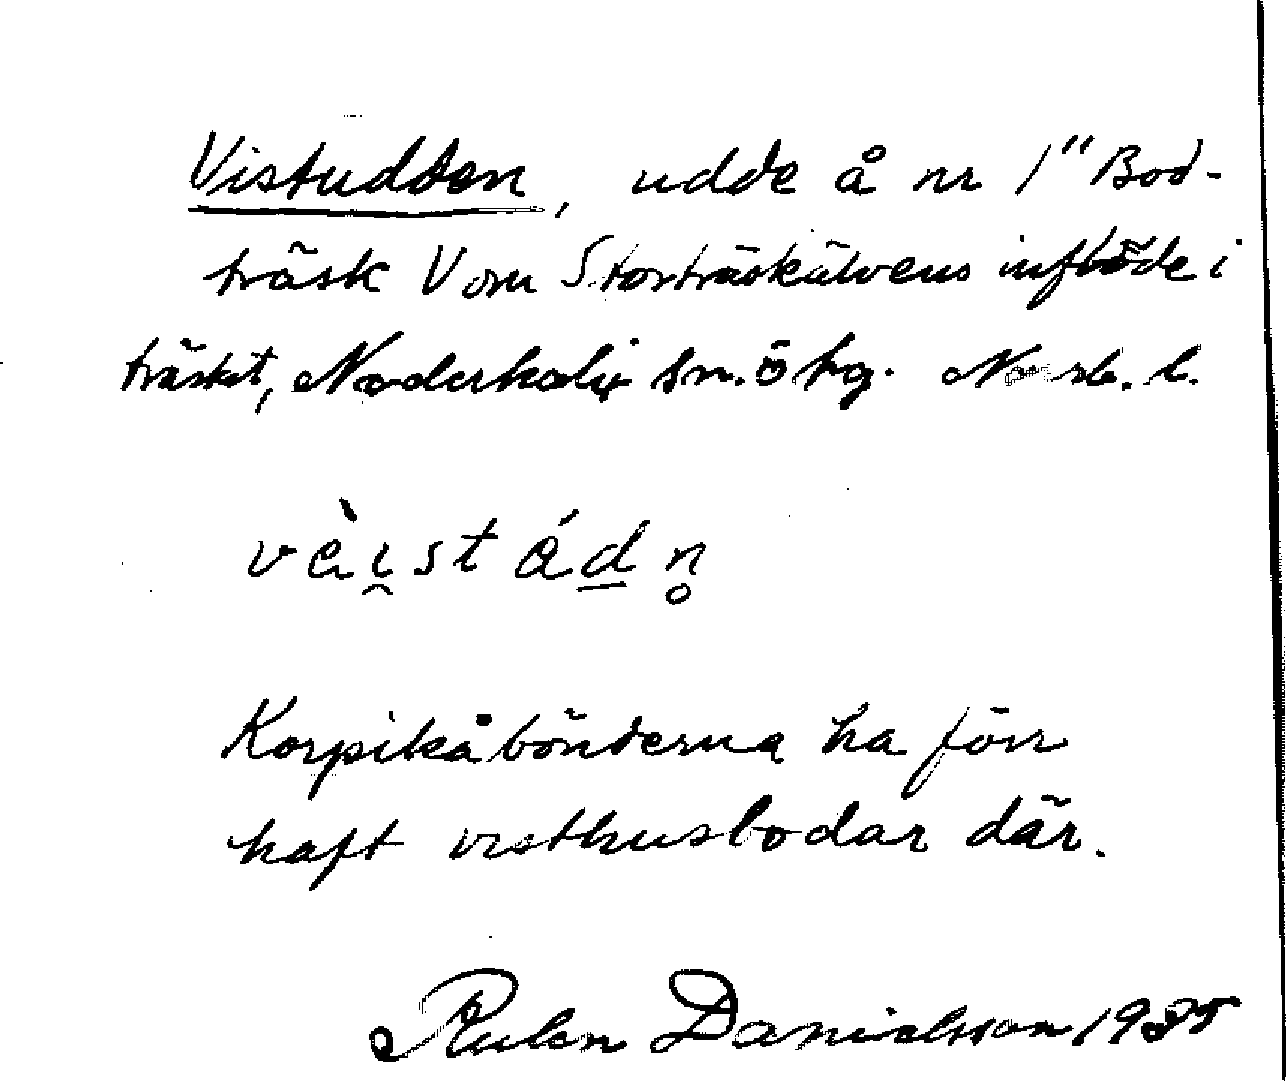 Vistudden, udde å nr 1" Bod-
träsk V om Storträskälvens inflöde i
träsket, Nederkalix sn. ö hg. Norrb. l.
vèi̯stád̲n̥
Korpikåbönderna ha förr
haft visthusbodar där.
Danielsson 1935